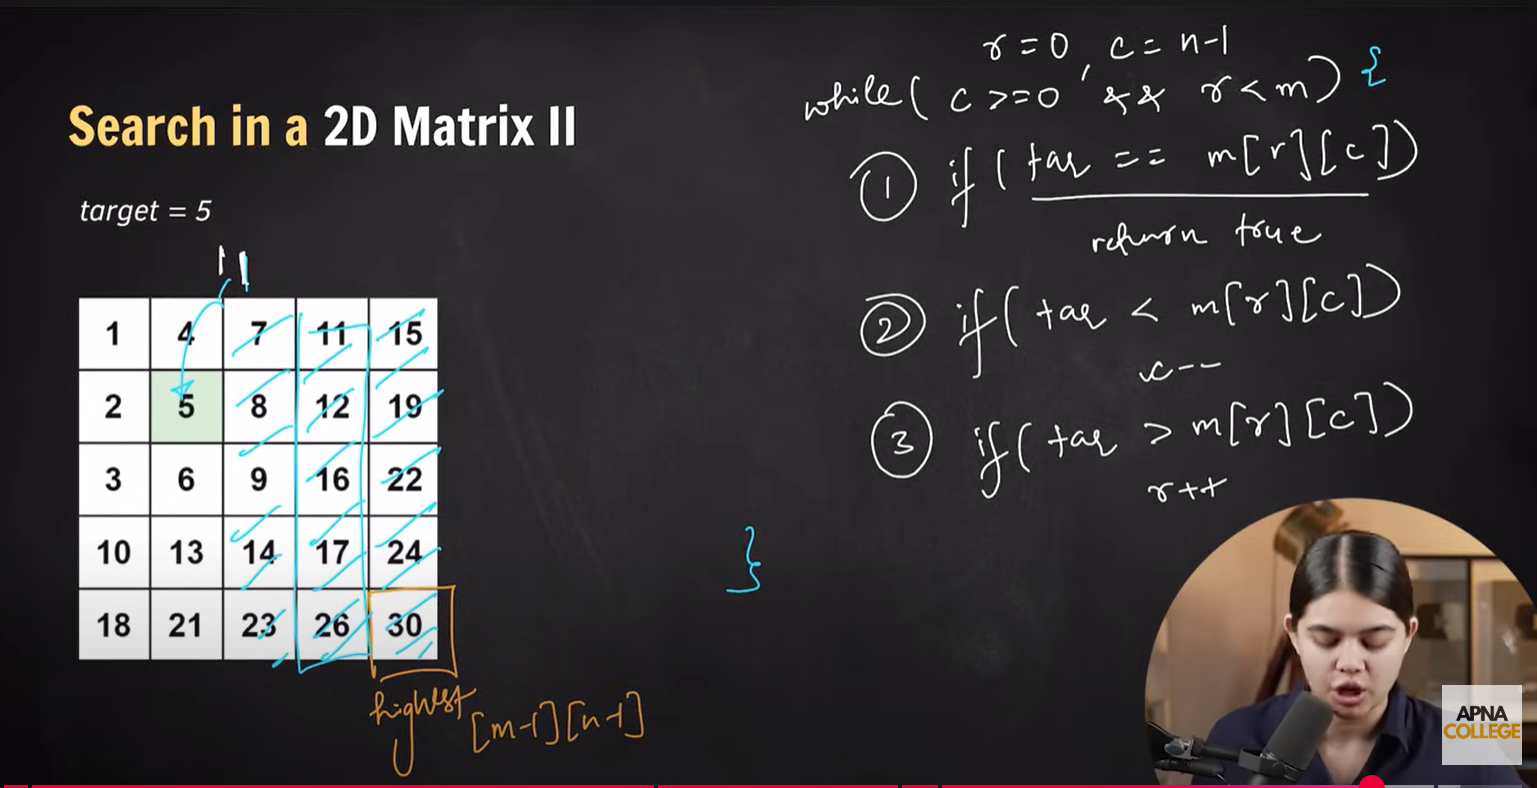 Search in a 2D Matrix II
target = 5
1 4 7 11 15
2 5 8 12 19
3 6 9 16 22
10 13 14 17 24
18 21 23 26 30
highest [m-1][n-1]
r = 0, c = n-1
while( c >= 0 && r < m) {
① if ( tar == m[r][c])
return true
② if( tar < m[r][c])
c--
③ if( tar > m[r][c])
r++
}
APNA
COLLEGE